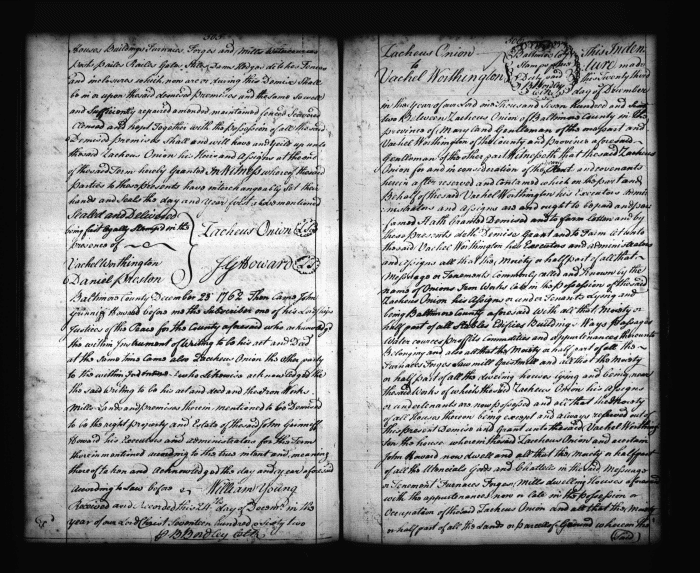 303
Houses Buildings Furnaces Forges and Mills Watercourses
Pales Rails Gates Dams Hedges ditches Fences
and inclosures which now are or during this Demise Shall
be in or upon the said demised premises and the same So well
and Sufficiently repaired amended maintained fenced Scoured
Cleansed and kept Together with the possession of all the said
Demised premises Shall and will have and Yeild up unto
the said Zacheus Onion his Heirs and assigns at the end
of the said Term hereby Granted In Witness whereof the said
Parties to these presents have interchangeably Set their
hands and Seals the day and Year first above mentioned
Sealed and Delivered
being first legally Stampd in the
presence of
Vachel Worthington
Daniel Preston
Zacheus Onion
J G Howard
Baltimore County December 23d 1762 Then Came John
Gunniff Howard before me the Subscriber one of his Lordships
Justices of the Peace for the County aforesaid who acknowledged
the within Instrument of Writing to be his act and Deed
at the Same time Came also Zacheus Onion the other party
to the within Indenture who likewise acknowledged the
the said writing to be his act and deed and the Iron Works
Mills Lands and premises therein mentioned to be Demised
to be the right property and Estate of the said John Gunniff
Howard his Executors and administrators for the Term
therein mentioned according to the true intent and meaning
thereof taken and Acknowledged the day and year aforesaid
according to Law before
William Young
Received and Recorded this 24th day of Decemr in the
year of our Lord Christ Seventeen hundred & sixty two
B Bordley Clk
Zacheus Onion
to
Vachel Worthington
Baltimore Coty
Stamp
Duty paid
B Bordley
This Inden
ture made
the Twenty third
day of December
in the Year of our Lord one Thousand Seven hundred and Sixty
two Between Zacheus Onion of Baltimore County in the
province of Maryland Gentleman of the one part and
Vachel Worthington of the County and province aforesaid
Gentleman of the other part Witnesseth that the said Zacheus
Onion for and in consideration of the Rent and covenants
herein after reserved and Contained which on the part and
Behalf of the said Vachel Worthington his Executors Admin
istrators and Assigns are and ought to be paid and per
formed Hath Granted Demised and to farm Letten and by
these Presents doth Demise Grant and to Farm Let unto
the said Vachel Worthington his Executors and administrators
and Assigns all that the Moiety or half part of all that
Messuage or Tenement Commonly called and Known by the
name of Onions Iron Works late in the possession of the said
Zacheus Onion his Assigns or under Tenants Lying and
being Baltimore County aforesaid with all that Moiety or
half part of all Stables Edifices Buildings Ways Passages
Water courses Profits Commodities and appurtenances thereunto
Belonging and also all that the Moiety or half part of all the
Furnaces Forges Saw mill Grist mill and all that the Moiety
or half part of all the dweling house lying and being near
the said Works of which the said Zacheus Onion his Assigns
or undertenants are now possessed and all that the Moiety
of all Houses thereon being except and always reserved out of
this present Demise and Grant unto the said Vachel Worthing
ton the house wherein the said Zacheus Onion and a certain
John Howard now dwell and all that the Moiety or half part
of all the Utencials Goods and Chattles in the said Messuage
or Tenement Furnaces Forges Mills dwelling Houses aforesaid
with the appurtenances now or late in the possession or
Occupation of the said Zacheus Onion and all that the Moiety
or half part of all the Lands or parcells of Ground wherein the
(said)